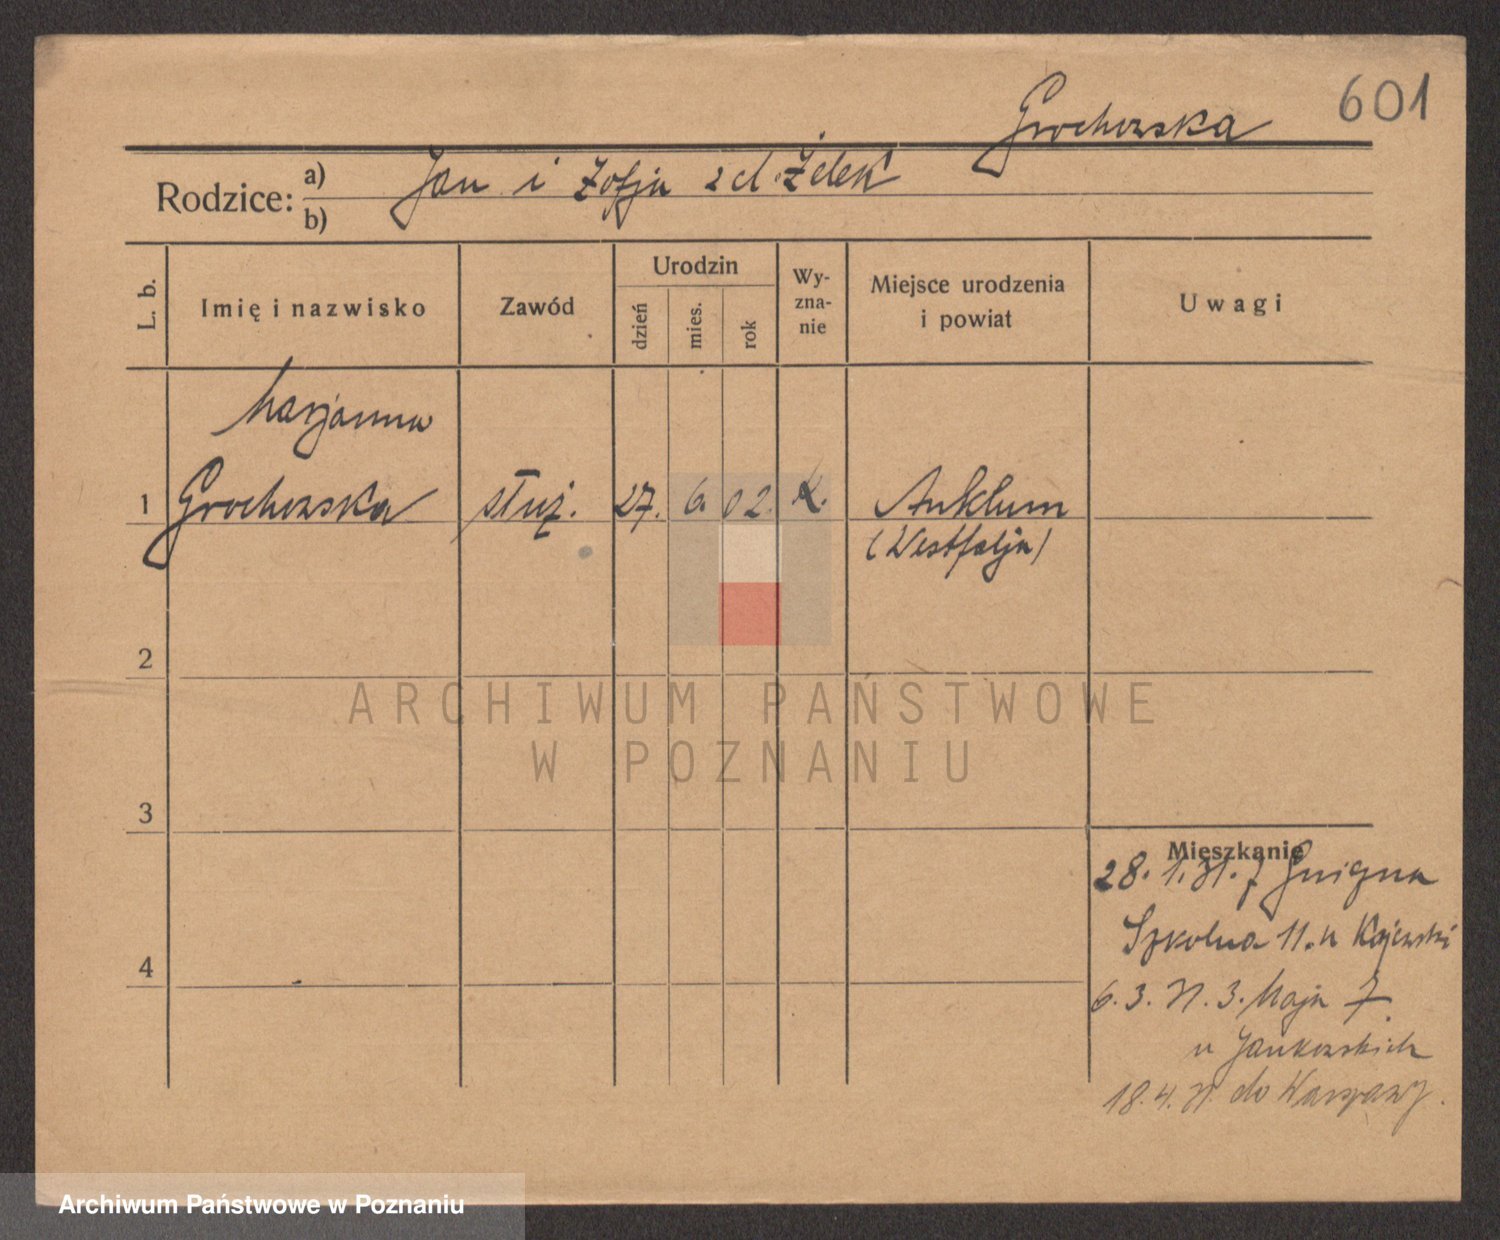 601
Grochowska
Rodzice: a) Jan i Zofja z d. Żelek
b)
L. b.
Imię i nazwisko
Zawód
Urodzin
dzień
mies.
rok
Wy-
zna-
nie
Miejsce urodzenia
i powiat
Uwagi
Marjanna
1 Grochowska służ. 27. 6. 02. k. Anklum
(Westfalja)
2
3
4
Mieszkanie
28. 1. 31. z
Szkolna 11. u Kajewski
6. 3. 31. 3. Maja 7.
u Jankowskich
18. 4. 31. do Warszawy.
ARCHIWUM PAŃSTWOWE
W POZNANIU
Archiwum Państwowe w Poznaniu